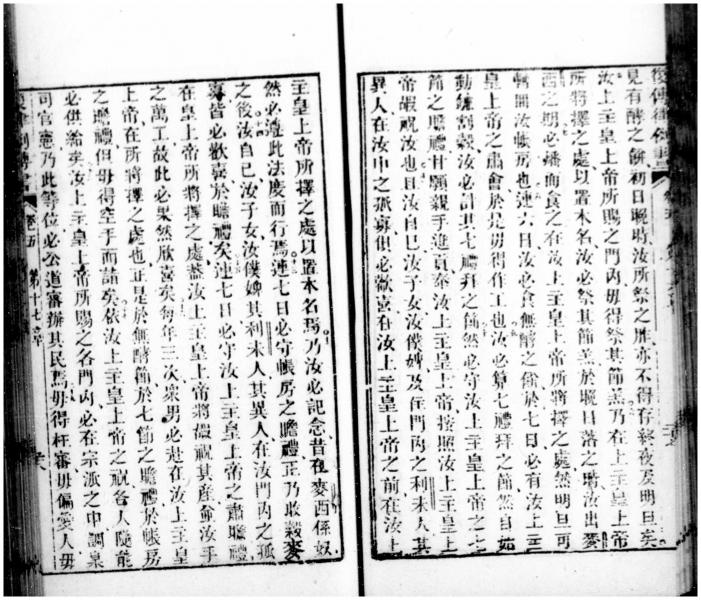 復傳律例書
見有酵之餅初日晚時汝所祭之胙亦不得存終夜及明旦矣
汝上主皇上帝所賜之門內毋得祭其節羔乃在上主皇上帝
所將擇之處以置本名汝必祭其節羔於晚日落之時汝出麥
西之期必燔而食之在汝上主皇上帝所將擇之處然明旦可
轉回汝帳房也連六日汝必食無酵之餅於七日必有汝上主
皇上帝之肅會於是毋得作工也汝必算七禮拜之節然自始
動鐮割穀汝必計其七禮拜之節然必守汝上主皇上帝之七
節之瞻禮甘願親手進貢奉汝上主皇上帝按照汝上主皇上
帝嘏祝汝也且汝自己汝子女汝僕婢及住門內之利未人其
異人在汝中之孤寡俱必歡喜在汝上主皇上帝之前在汝上
主皇上帝所擇之處以置本名焉乃汝必記念昔在麥西係奴
然必遵此法度而行焉連七日必守帳房之瞻禮正乃收穀麥
之後汝自己汝子女汝僕婢其利未人其異人在汝門內之孤
寡皆必歡與於瞻禮矣連七日必守汝上主皇上帝之肅瞻禮
在皇上帝所將擇之處蓋汝上主皇上帝將嘏祝其產並汝手
之萬工故此必果然欣喜矣每年三次眾男必赴在汝上主皇
上帝在所將擇之處也正是於無酵節於七節之瞻禮於帳房
之瞻禮但毋得空手而詣矣依汝上主皇上帝之祝各人隨能
必供給矣汝上主皇上帝所賜之各門內必在宗派之中調臬
司官憲乃此等位必公道審辦其民焉毋得枉審毋偏愛人毋
卷五 第十七章